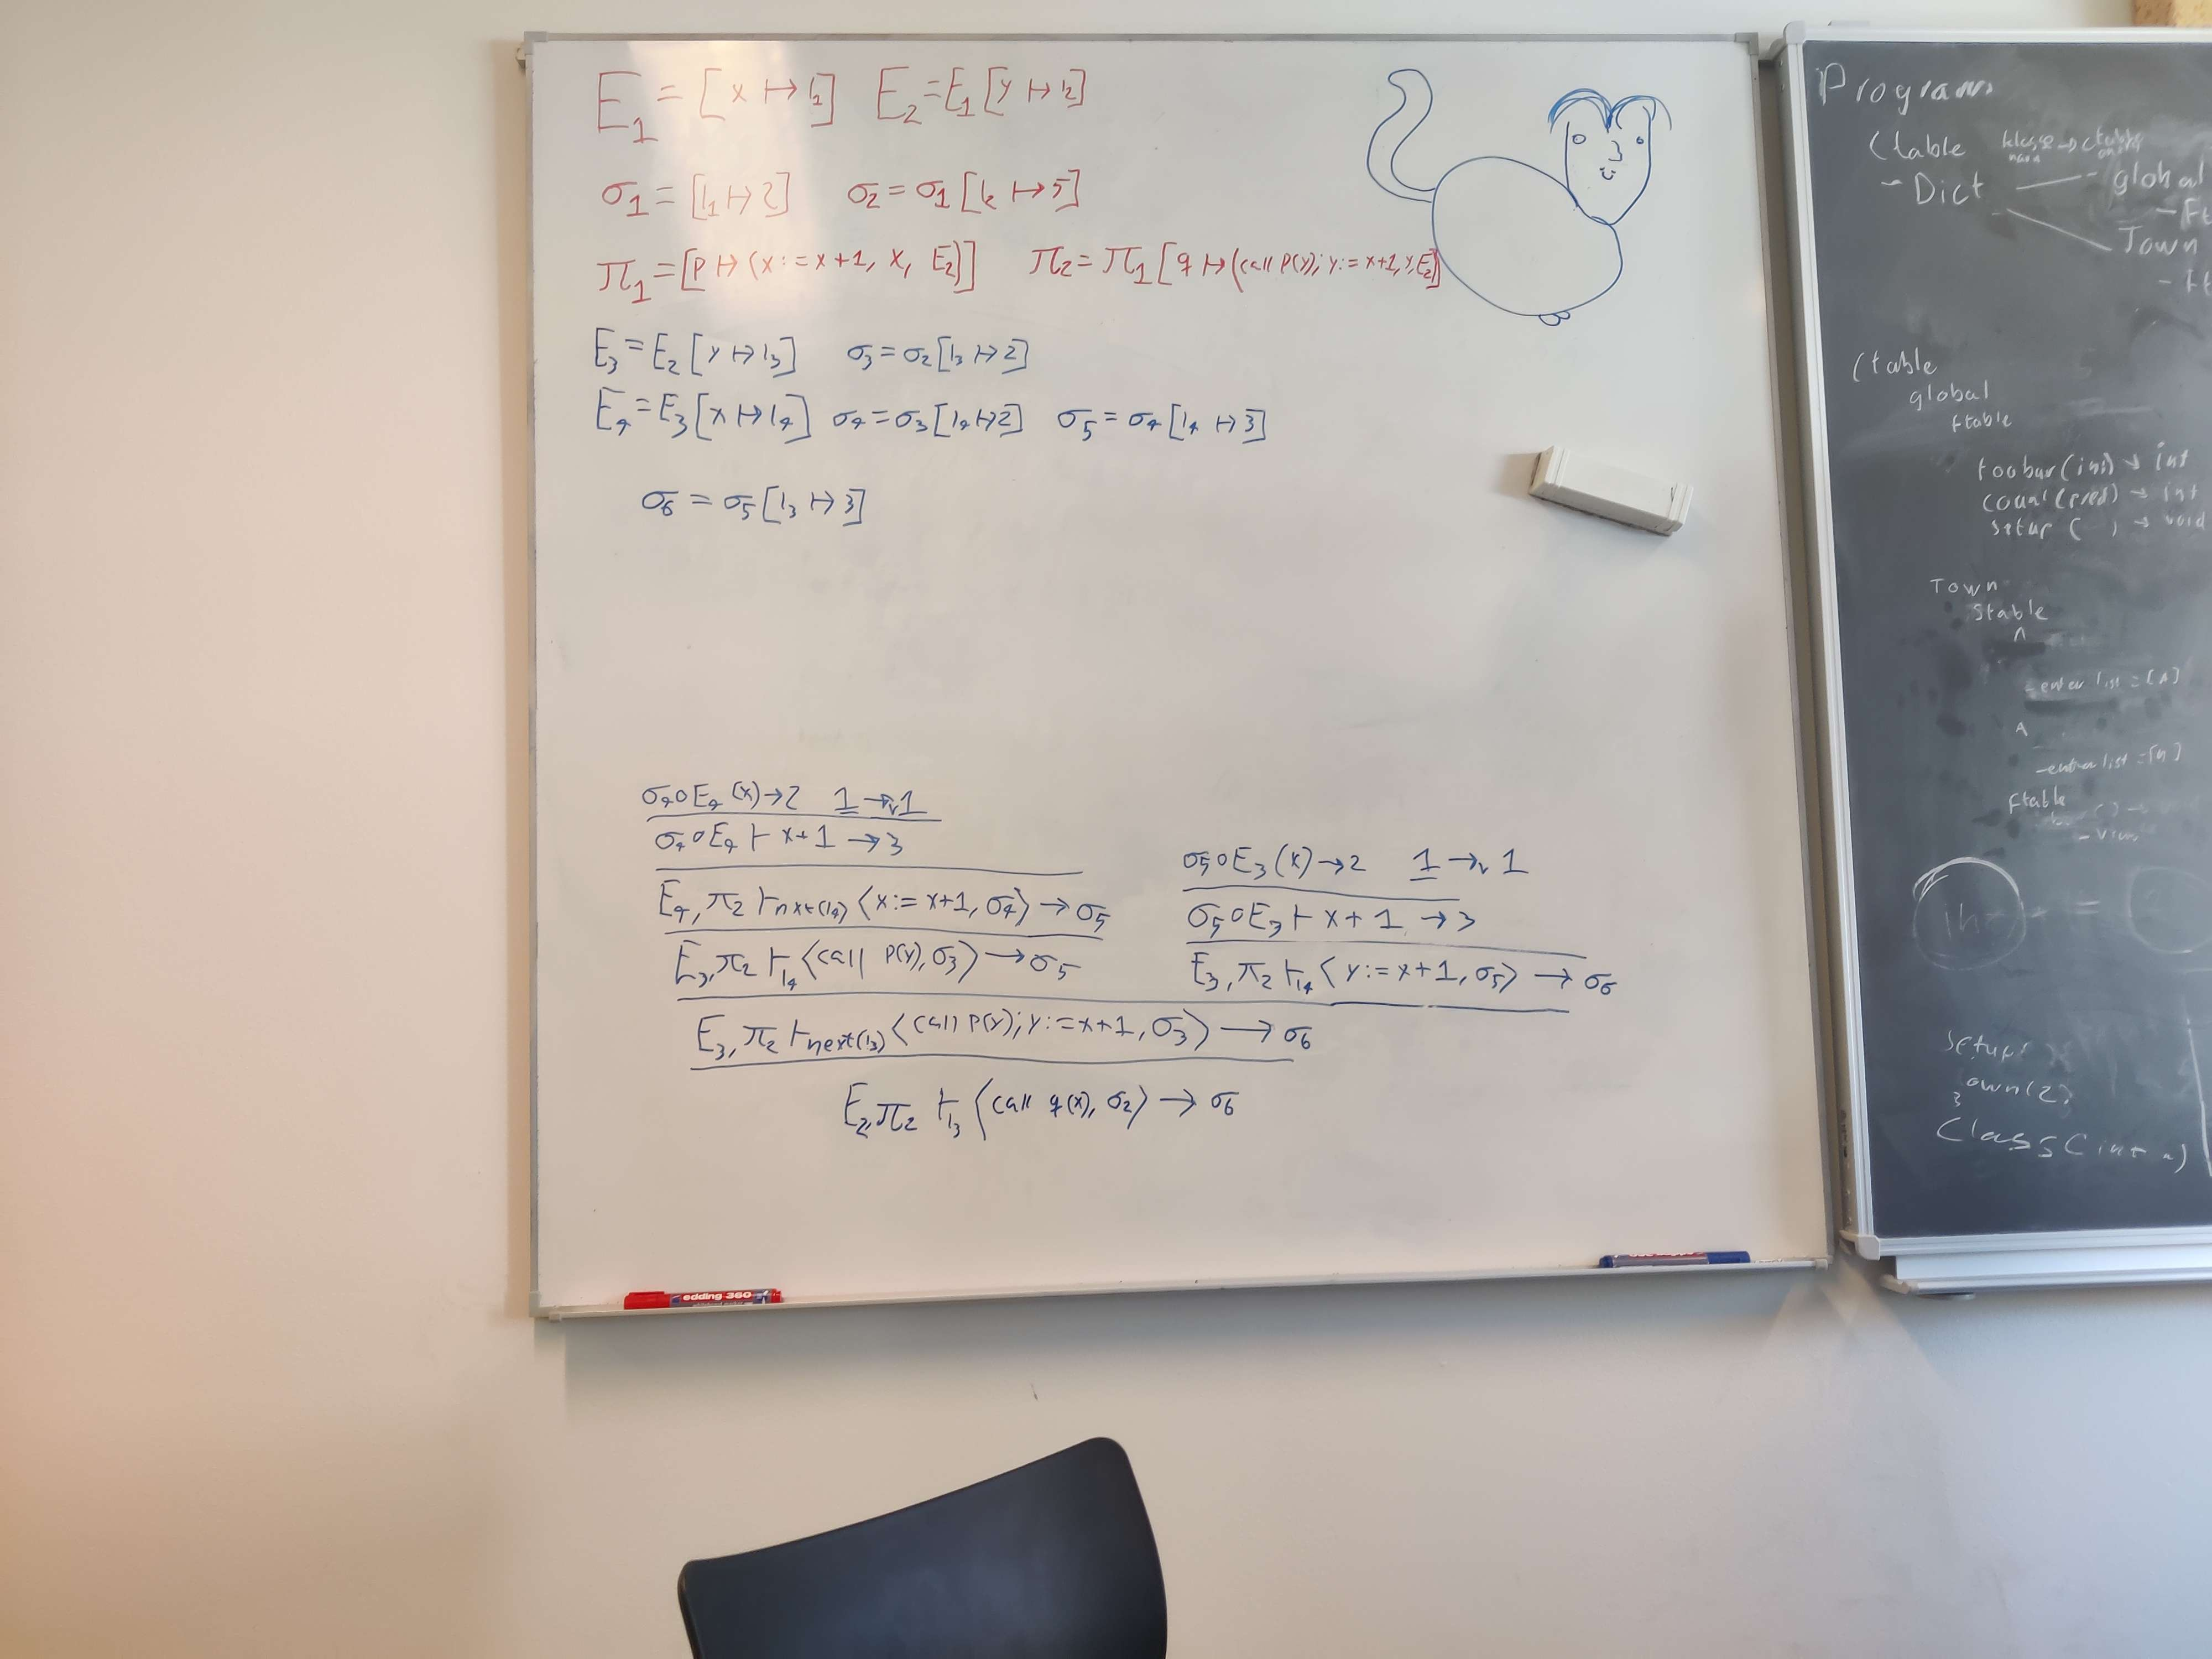 E₁ = [x ↦ l₁] E₂ = E₁ [y ↦ l₂]
σ₁ = [l₁ ↦ 2] σ₂ = σ₁ [l₂ ↦ 5]
π₁ = [p ↦ (x := x+1, x, E₂)] π₂ = π₁ [q ↦ (call p(y); y := x+1, y, E₂)]
E₃ = E₂ [y ↦ l₃] σ₃ = σ₂ [l₃ ↦ 2]
E₄ = E₃ [x ↦ l₄] σ₄ = σ₃ [l₄ ↦ 2] σ₅ = σ₄ [l₄ ↦ 3]
σ₆ = σ₅ [l₃ ↦ 3]
σ₄∘E₄ (x) → 2 1 →ᵥ 1
σ₄∘E₄ ⊢ x+1 → 3
E₄, π₂ ⊢next(l₄) ⟨x := x+1, σ₄⟩ → σ₅
E₃, π₂ ⊢l₄ ⟨call p(y), σ₃⟩ → σ₅
σ₅∘E₃ (x) → 2 1 →ᵥ 1
σ₅∘E₃ ⊢ x+1 → 3
E₃, π₂ ⊢l₄ ⟨y := x+1, σ₅⟩ → σ₆
E₃, π₂ ⊢next(l₃) ⟨call p(y); y := x+1, σ₃⟩ → σ₆
E₂, π₂ ⊢l₃ ⟨call q(x), σ₂⟩ → σ₆
edding 360
Program
Ctable
- Dict - global
- Ft
Town
- Ft
Ctable
global
Ftable
foobar(int) → int
count(pred) → int
setup ( ) → void
Town
Stable
A
- enter list = [A]
A
Ftable
Setup
own(2)
Class C int